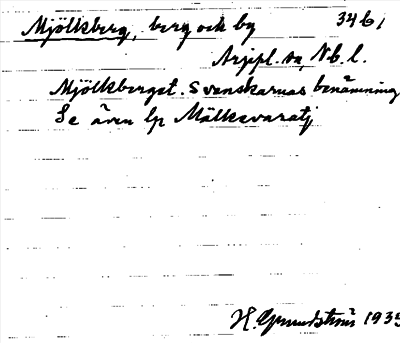 Mjölkberg, berg och by 34 b 1
Arjepl. sn, Nb. l.
Mjölkberget. Svenskarnas benämning
Se även lp Mälkevaratj
H. Grundström 1935